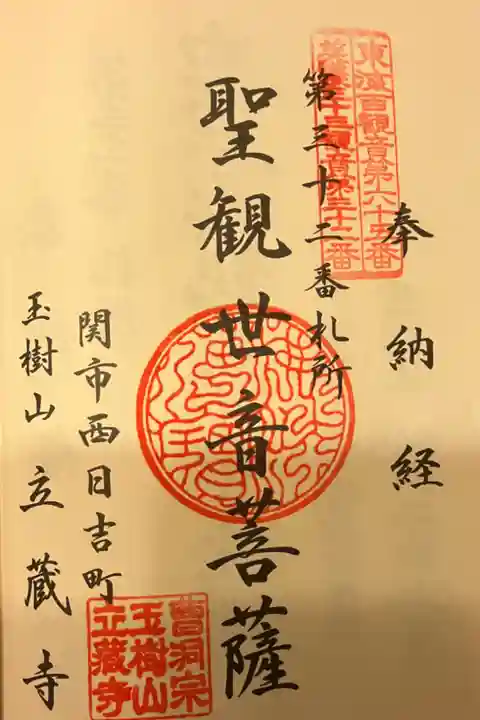 奉納経
東海百観音第六十五番
美濃三十三観音第三十二番
第三十二番札所
聖観世音菩薩
関市西日吉町
玉樹山立蔵寺
曹洞宗
玉樹山
立蔵寺